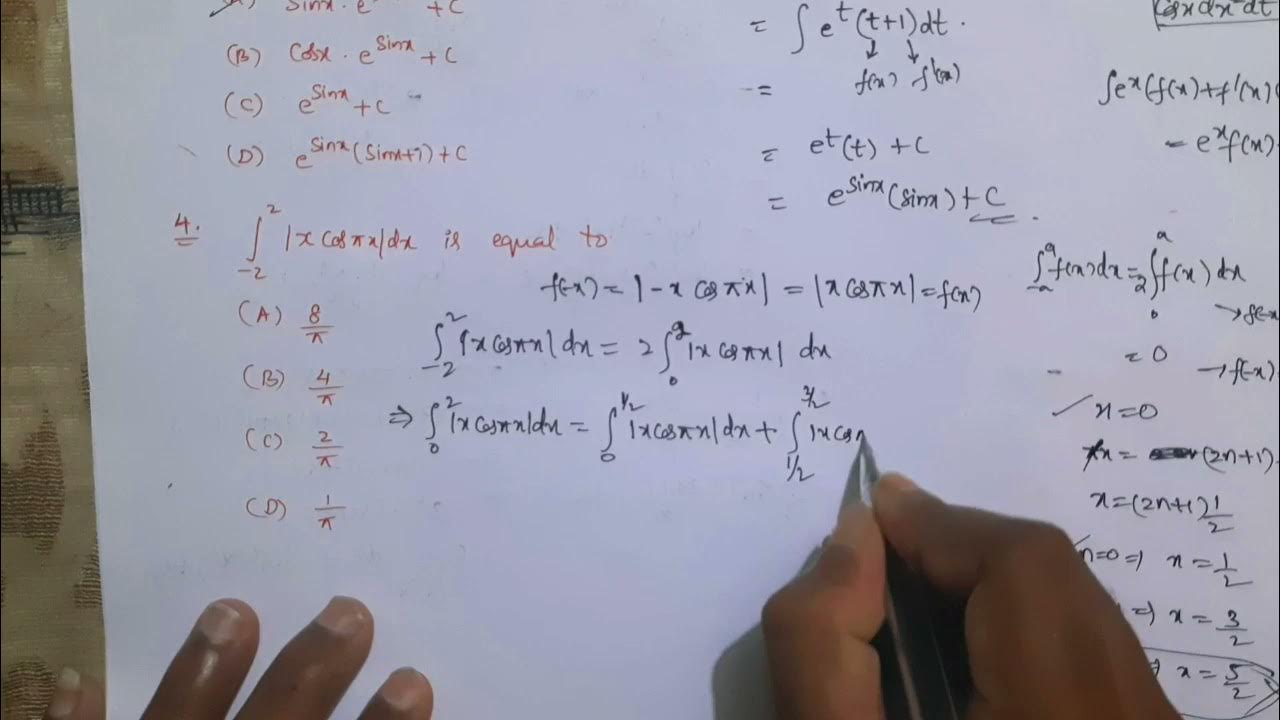 Sinx · e^Sinx + C
(B) Cosx · e^Sinx + C
(C) e^Sinx + C
(D) e^Sinx (Sinx+1) + C
= ∫ e^t (t+1) dt .
f(x) f'(x)
=
= e^t (t) + C
= e^Sinx (Sinx) + C .
Cosx dx = dt
∫e^x (f(x) + f'(x)
= e^x f(x)
4. ∫_{-2}^{2} |x Cosπx| dx is equal to
(A) 8/π
(B) 4/π
(C) 2/π
(D) 1/π
f(-x) = |-x Cosπx| = |x Cosπx| = f(x)
∫_{-2}^{2} |x Cosπx| dx = 2 ∫_0^2 |x Cosπx| dx
⇒ ∫_0^2 |x Cosπx| dx = ∫_0^{1/2} |x Cosπx| dx + ∫_{1/2}^{3/2} |x Cos
∫_{-a}^{a} f(x) dx = 2 ∫_0^a f(x) dx
= 0 → f(-x)
✓ x = 0
(2n+1)
x = (2n+1) 1/2
n=0 ⇒ x = 1/2
⇒ x = 3/2
x = 5/2